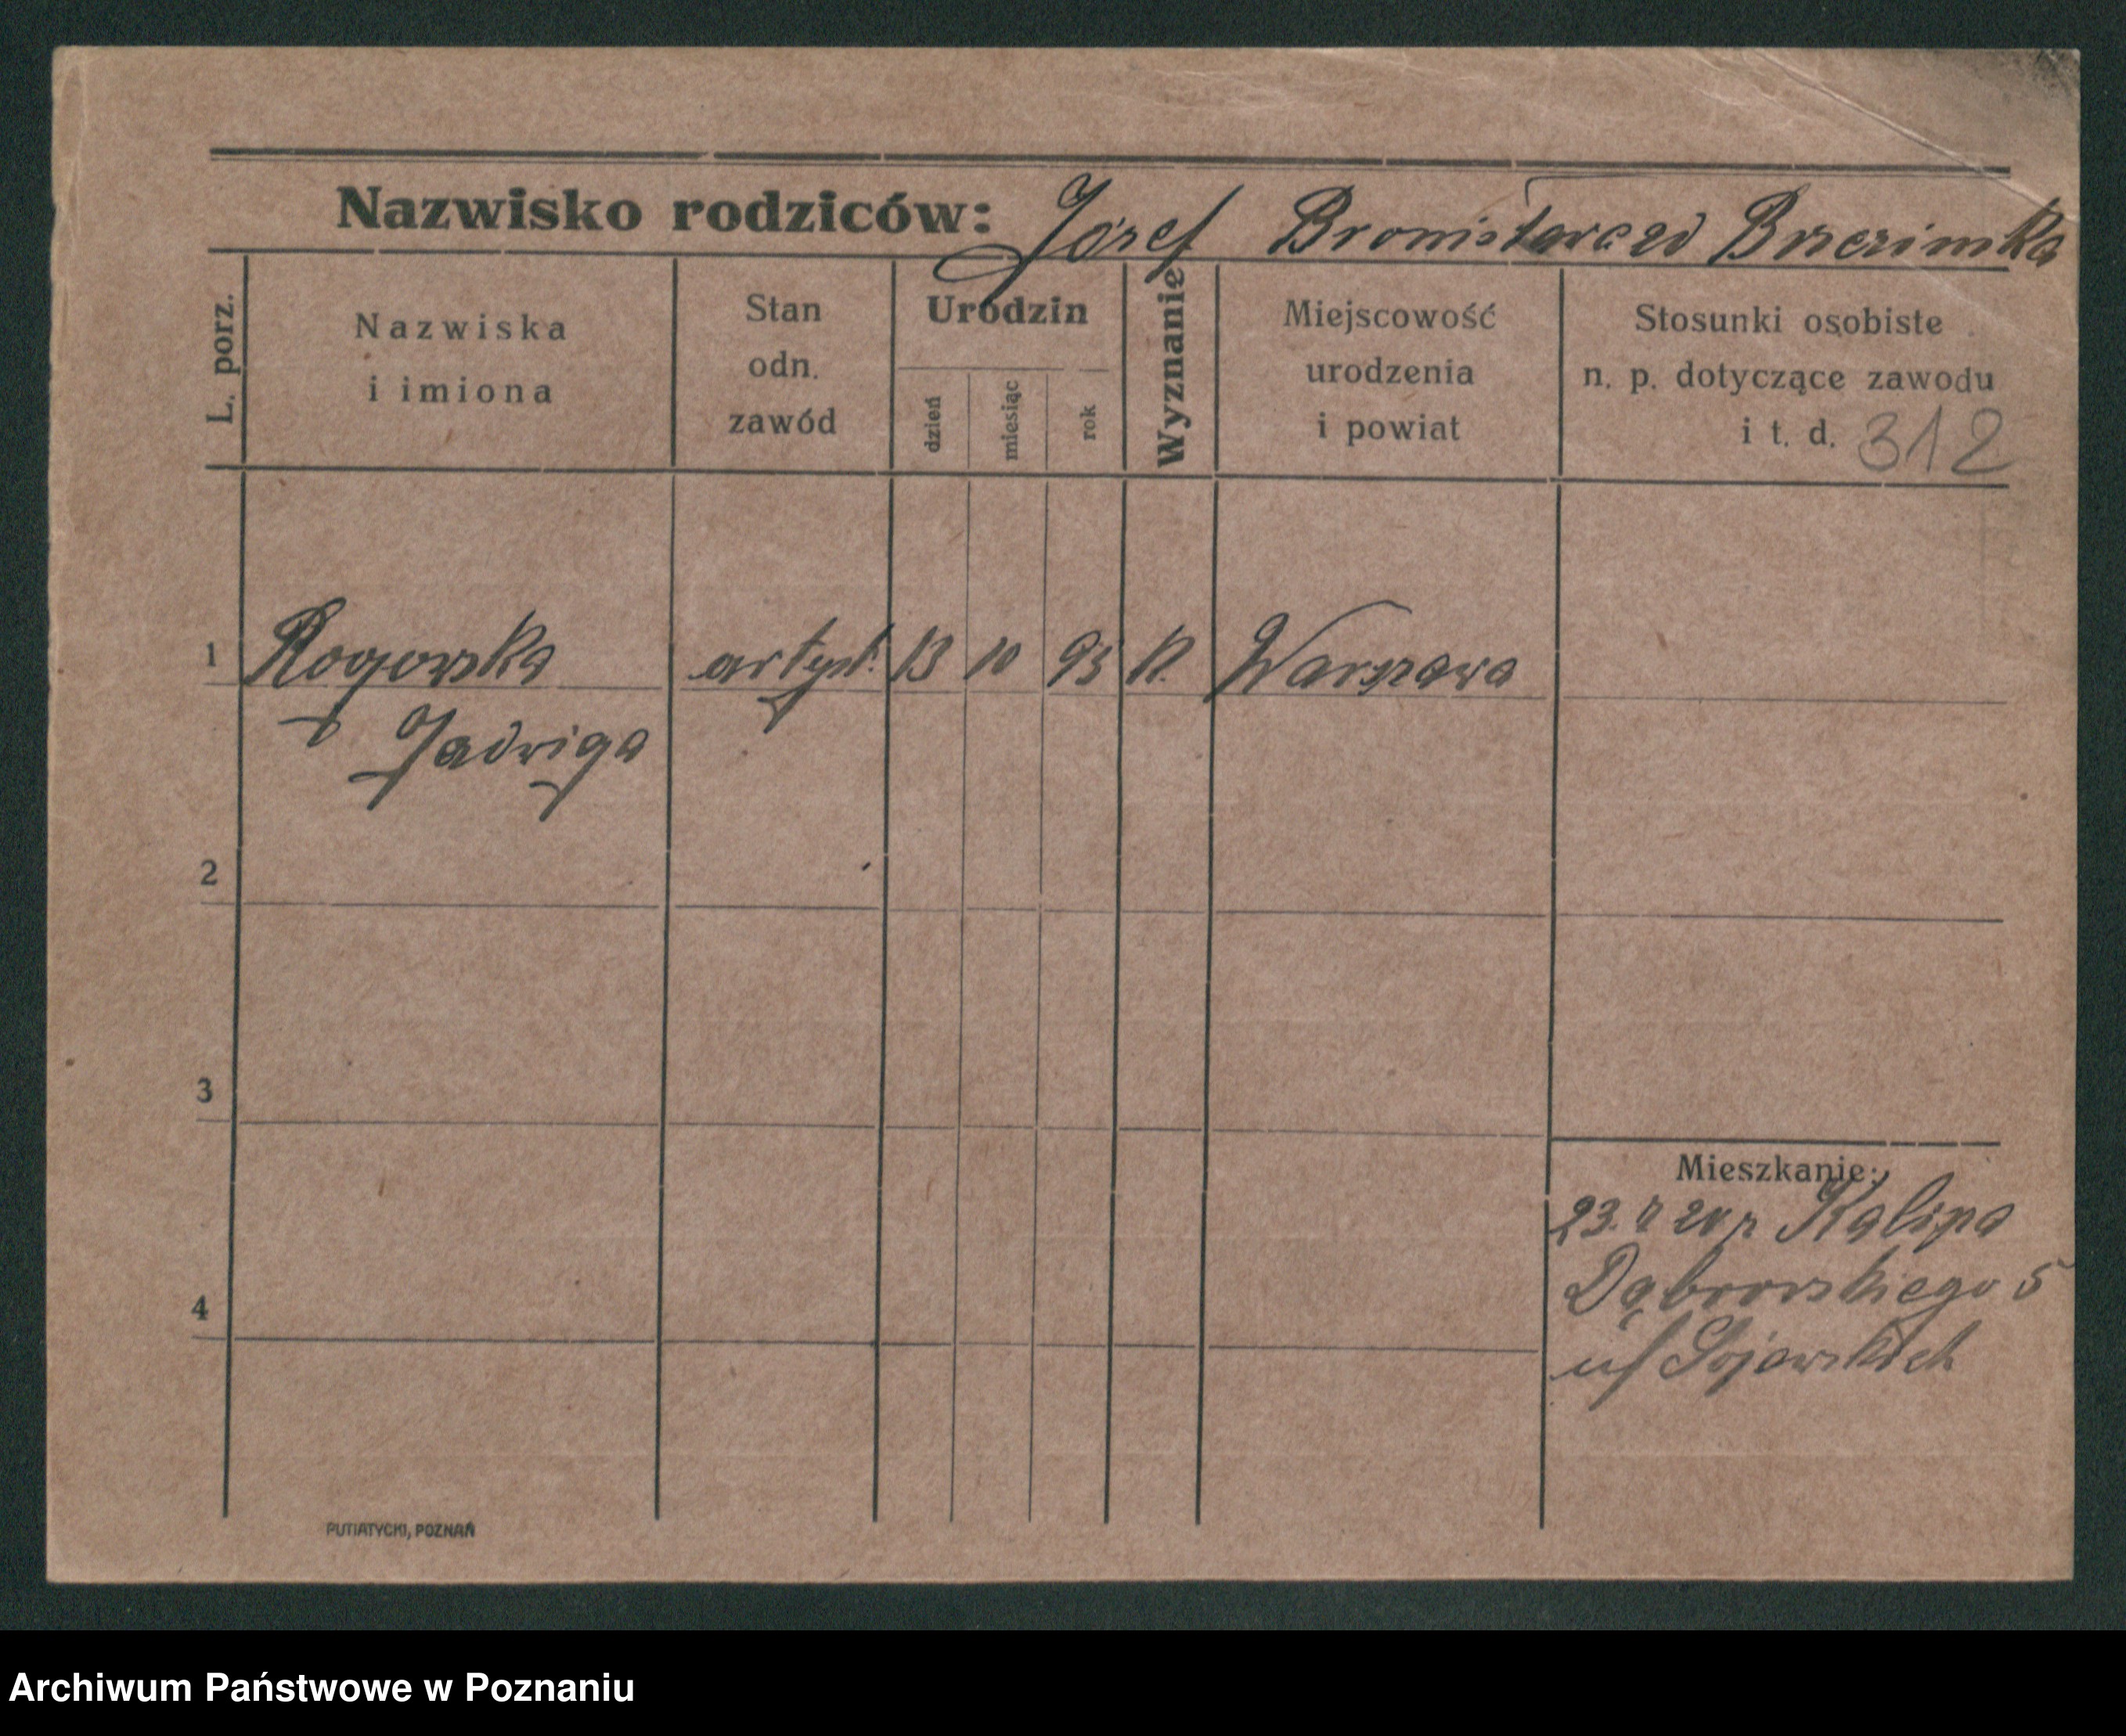 Nazwisko rodziców: Józef Bronisława zd Brzezimka
L. porz.
Nazwiska
i imiona
Stan
odn.
zawód
Urodzin
dzień
miesiąc
rok
Wyznanie
Miejscowość
urodzenia
i powiat
Stosunki osobiste
n. p. dotyczące zawodu
i t. d. 312
1 Rogowska artyst. 13 10 95 k. Warszawa
Jadwiga
2
3
4
Mieszkanie:
23. 20 r Kalisza
Dąbrowskiego 5
u/ Gojewskich
PUTIATYCKI, POZNAŃ
Archiwum Państwowe w Poznaniu